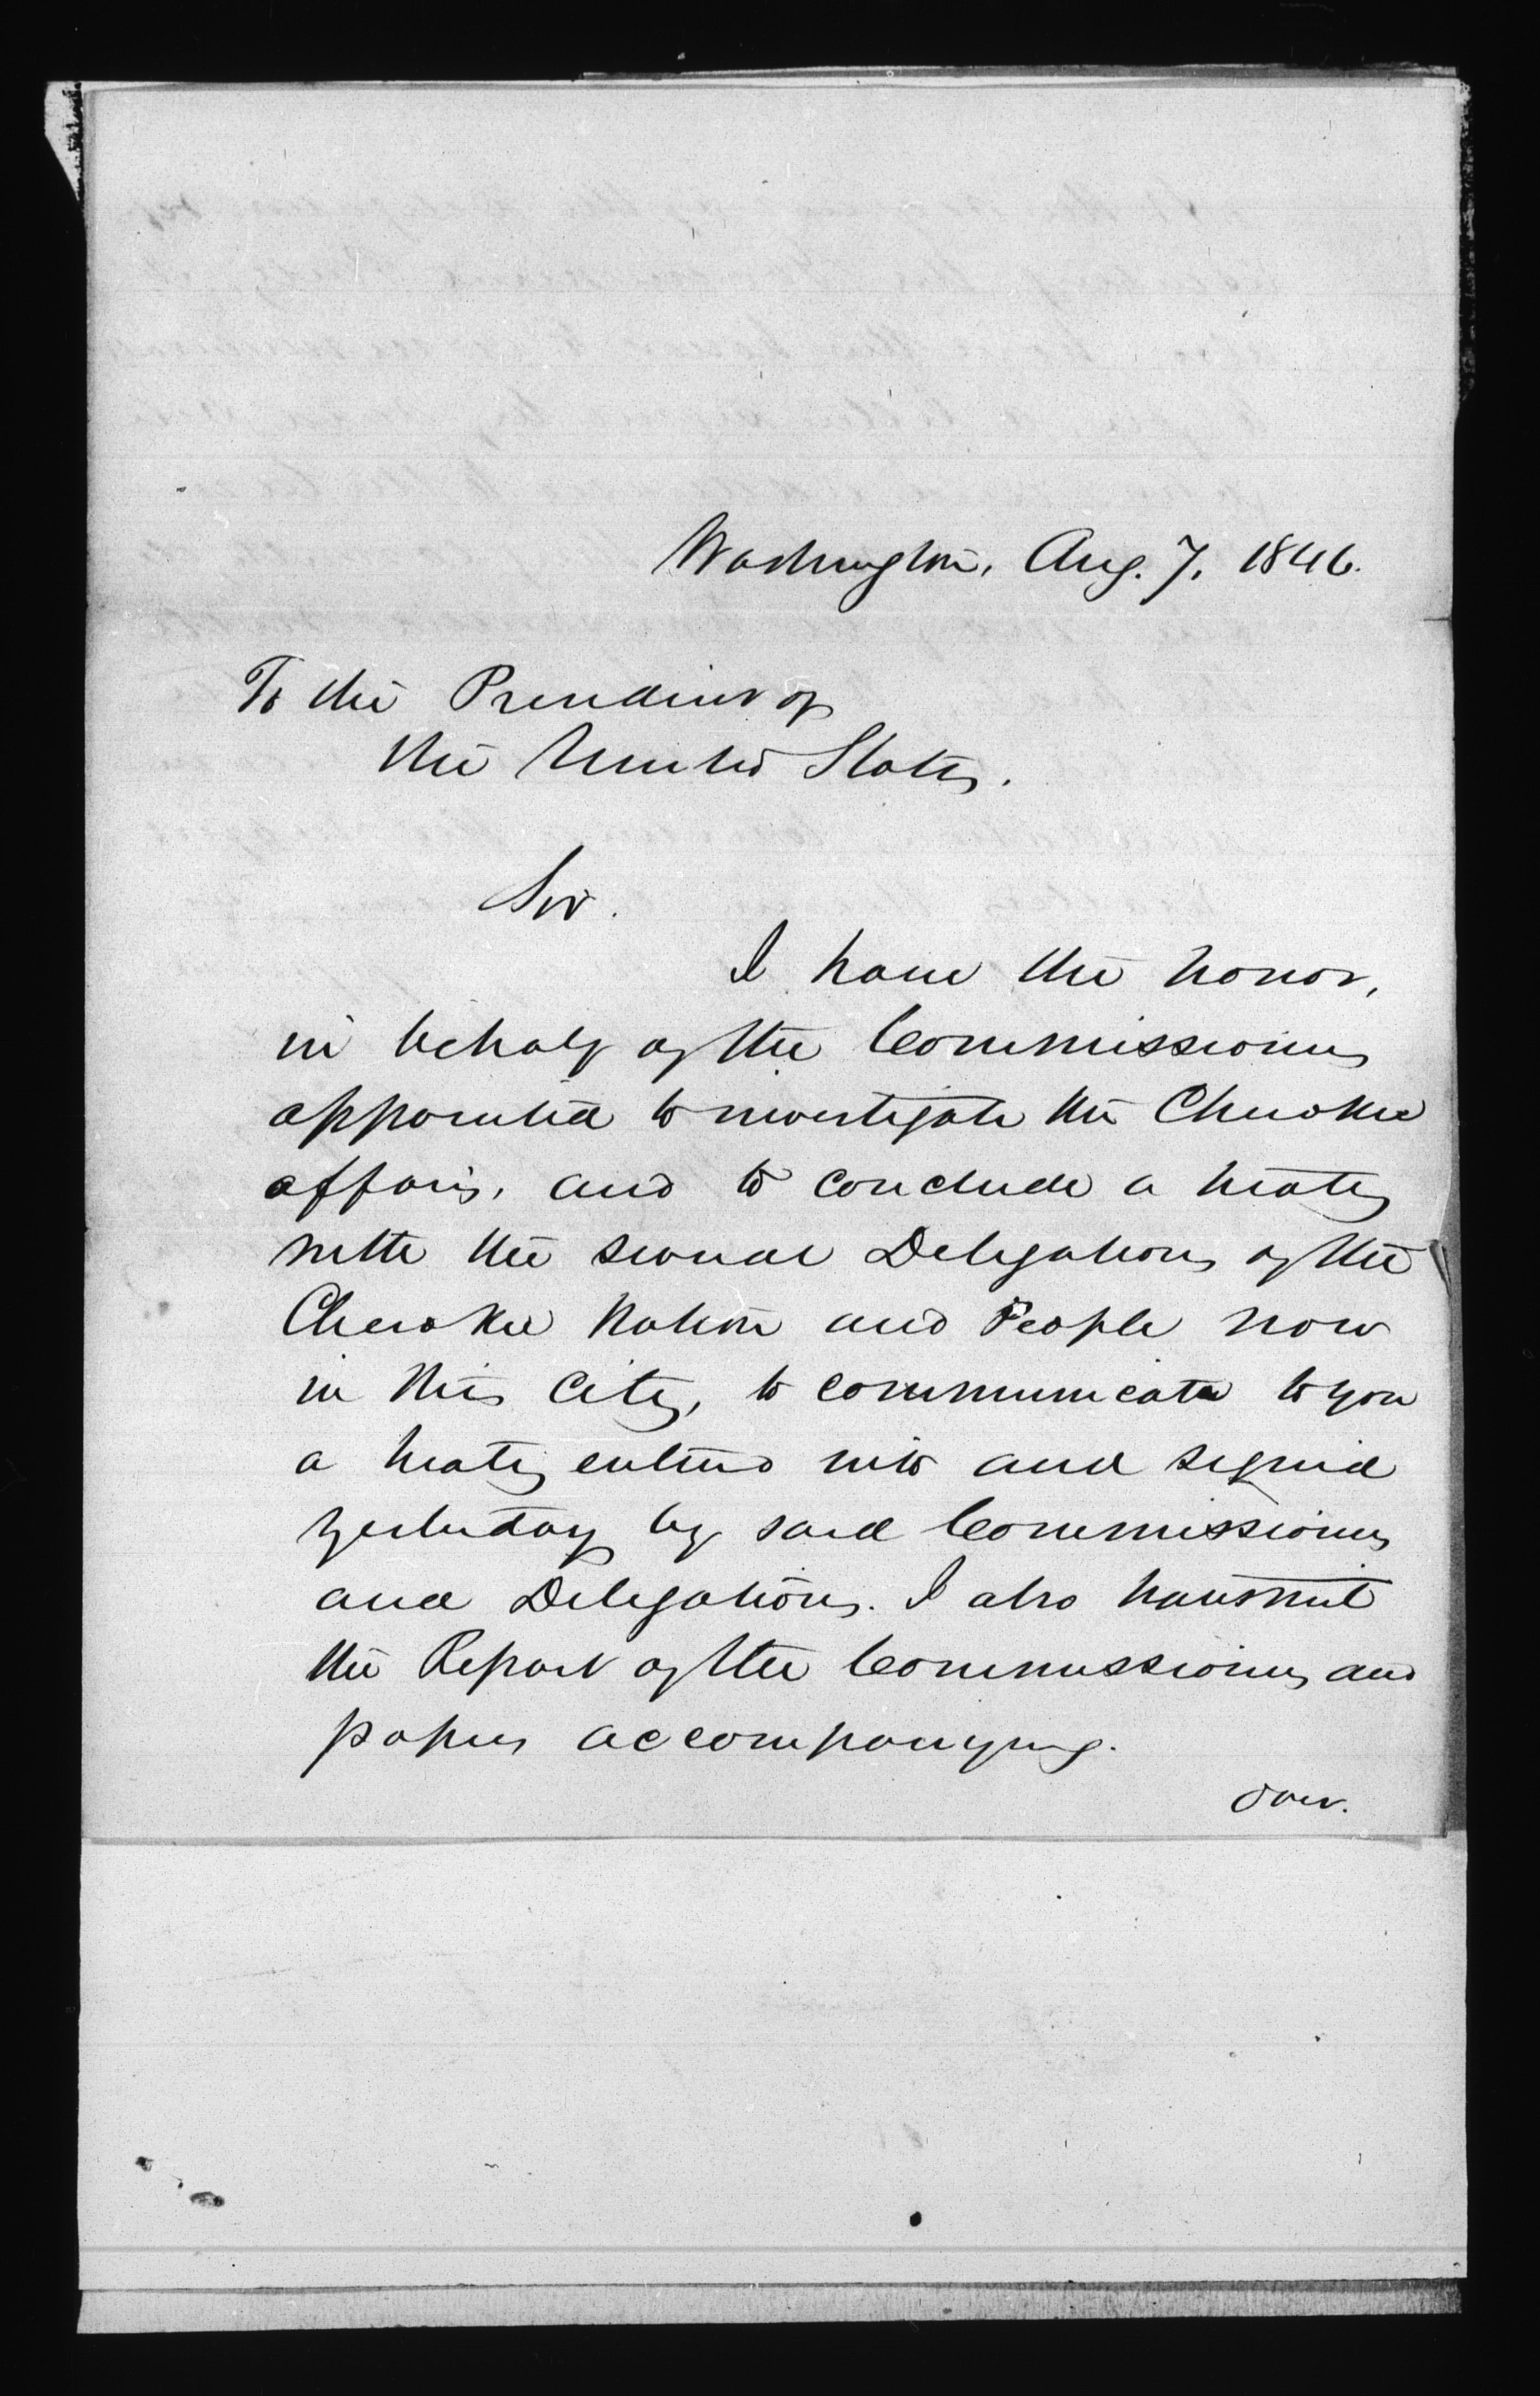 Washington, Aug. 7, 1846.
To the President of
the United States.
Sir.
I have the honor,
in behalf of the Commissioners
appointed to investigate the Cherokee
affairs, and to conclude a treaty
with the several Delegations of the
Cherokee Nation and People now
in this City, to communicate to you
a treaty entered into and signed
yesterday by said Commissioners
and Delegations. I also transmit
the Report of the Commissioners and
papers accompanying.
over.